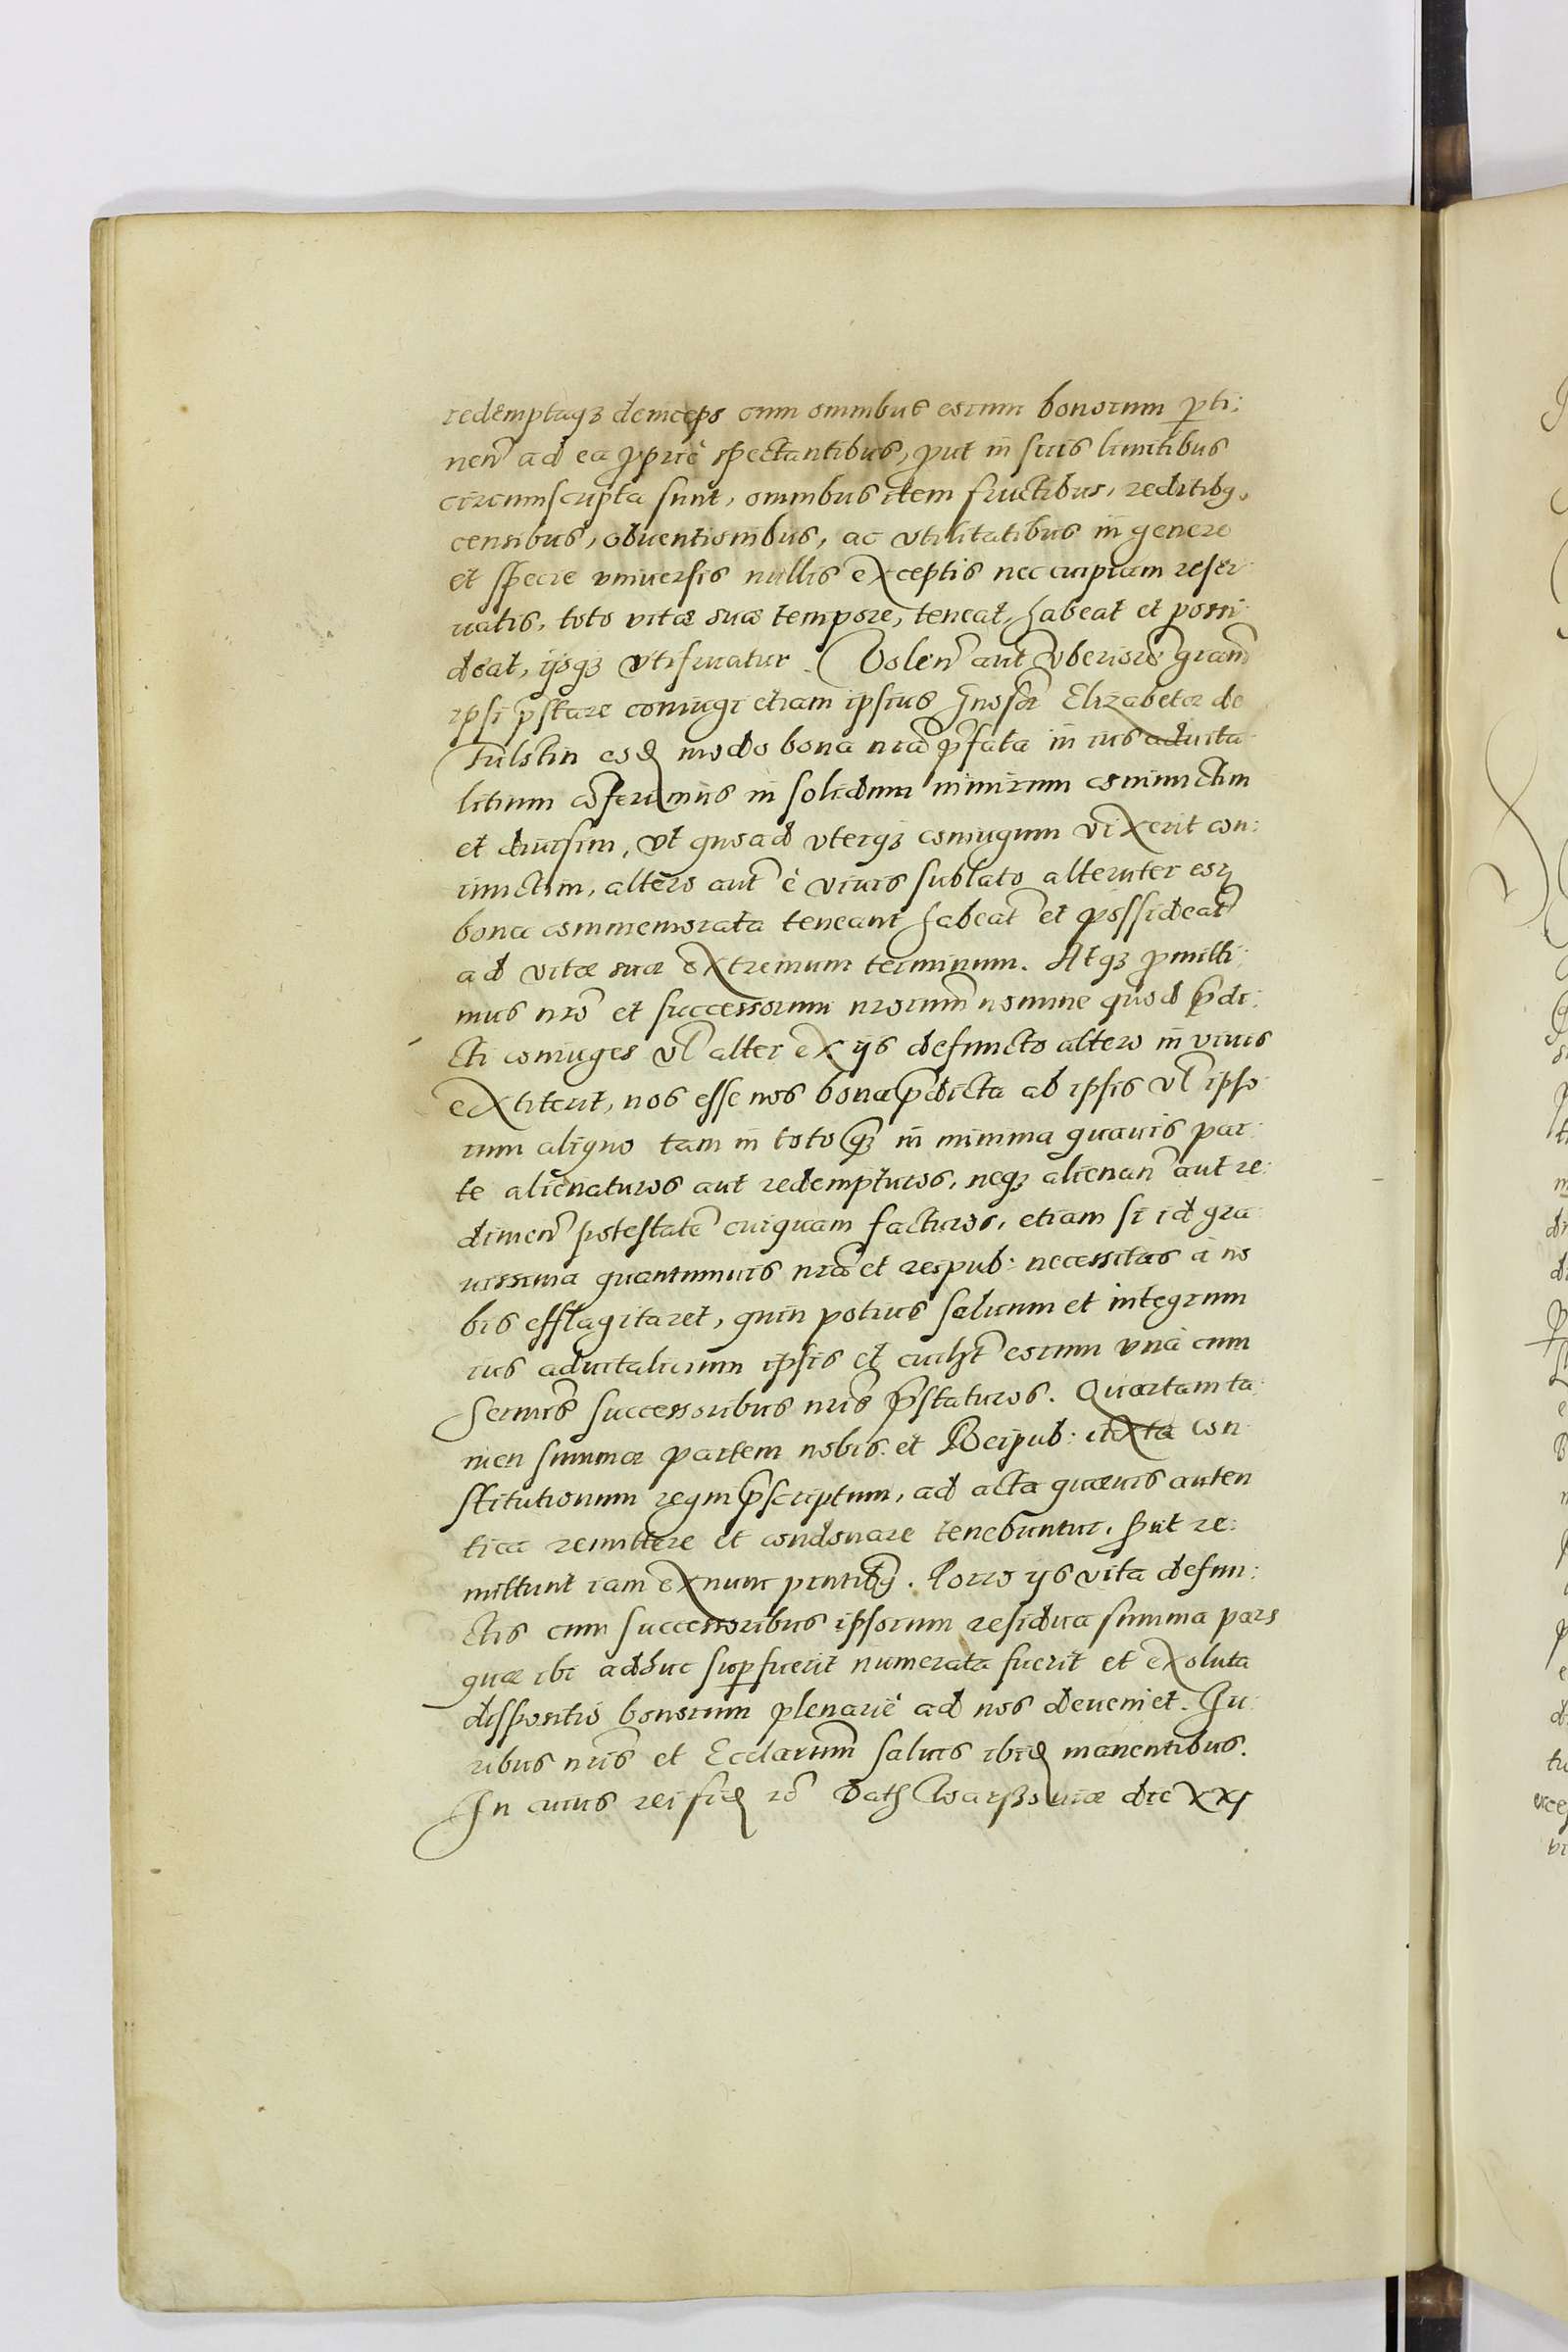 redemptaqꝫ deinceps cum omnibus eorum bonorum ꝑti:
nen̄ ad ea ꝓprié spectantibus, ꝓut in suis limitibus
circumscripta sunt, omnibus item fructibus, reditibꝯ,
censibus, obuentionibus, ac vtilitatibus in genere
et specie vniuersis nullis exceptis nec cuipiam reser
uatis, toto vitæ suæ tempore, teneat, habeat et possi
deat, ijsqꝫ vtifruatur. Volen̄ aut̄ vberiorē gram̄
ipsi p̄stare coniugi etiam ipsius Gnosæ Elizabetæ de
Tulstin eod modo bona nrā p̄fata in ius aduita
litium cōferimus in solidum nimirum coniunctim
et diuisim, vt quoad vterqꝫ coniugum vixerit con:
iunctim, altero aut̄ è viuis sublato alteruter eoꝝ
bona commemorata teneant habeat̄ et possideat̄
ad vitæ suæ extremum terminum. Atqꝫ ꝓmitti:
mus nrō et successorum nrorum̄ nomine quod p̄di:
cti coniuges vl̄ alter ex ijs defuncto altero in viuis
extiterit, nos esse nos bona p̄dicta ab ipsis vl̄ ipso
rum aliquo tam in toto qꝫ in minima quauis par:
te alienaturos aut redempturos, neqꝫ alienan̄ aut re:
dimen̄ potestatē cuiquam facturos, etiam si id gra
uissima quantumuis nrā et reipub: necessitas à no
bis efflagitaret, quin potius saluum et integrum
ius aduitalitium ipsis et cuilꝫt eorum vnà cum
Sermis̄ successoribus nris̄ p̄staturos. Quartam ta:
men summæ partem nobis et Reipub: iuxta con
stitutionum regni p̄scriptum, ad acta quæuis auten
tica remittere et condonare tenebuntur, ꝓut re:
mittunt iam ex nunc pn̄tibꝯ. Porro ijs vita defun:
ctis cum successoribus ipsorum residua summa pars
quæ ibi adhuc suꝑfuerit numerata fuerit et exoluta
dispositio bonorum plenarié ad nos deueniet. Iu:
ribus nris̄ et Ecclarum̄ saluis ibid manentibus.
In cuius rei fid rō Dat Warszouiæ die XXI